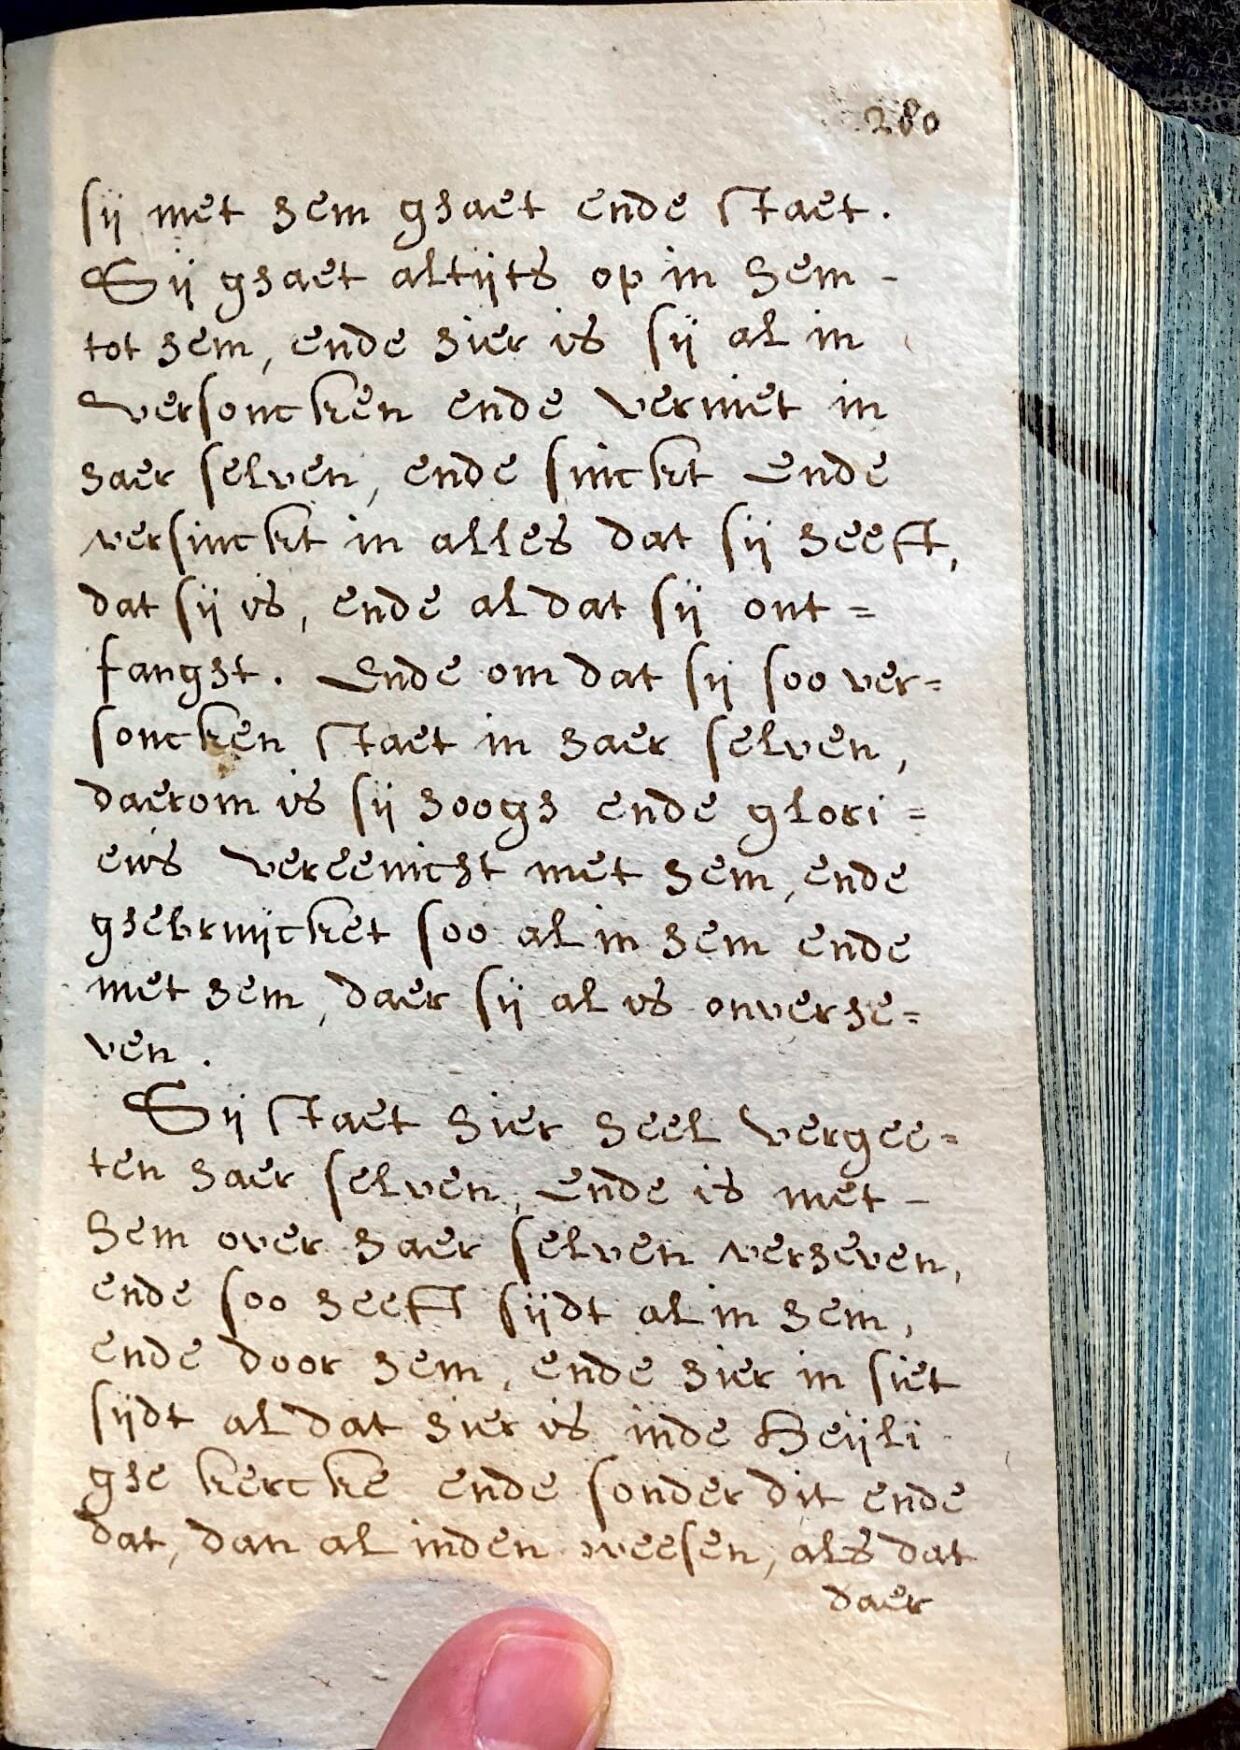 280
sij met hem ghaet ende staet.
Sij ghaet altijts op in hem -
tot hem, ende hier is sij al in
versoncken ende verniet in
haer selven, ende sinckt Ende
versinckt in alles dat sij heeft,
dat sij is, ende al dat sij ont=
fanght. Ende om dat sij soo ver=
soncken staet in haer selven,
daerom is sij hoogh ende glori=
eus vereenicht met hem, ende
ghebruijcket soo al in hem ende
met hem, daer sij al is onverhe=
ven.
Sij staet hier heel vergee=
ten haer selven, Ende is met -
hem over haer selven verheven,
ende soo heeft sijdt al in hem,
ende door hem, ende hier in siet
sijdt al dat hier is inde Heijli
ghe kercke ende sonder dit ende
dat, dan al inden weesen, als dat
daer